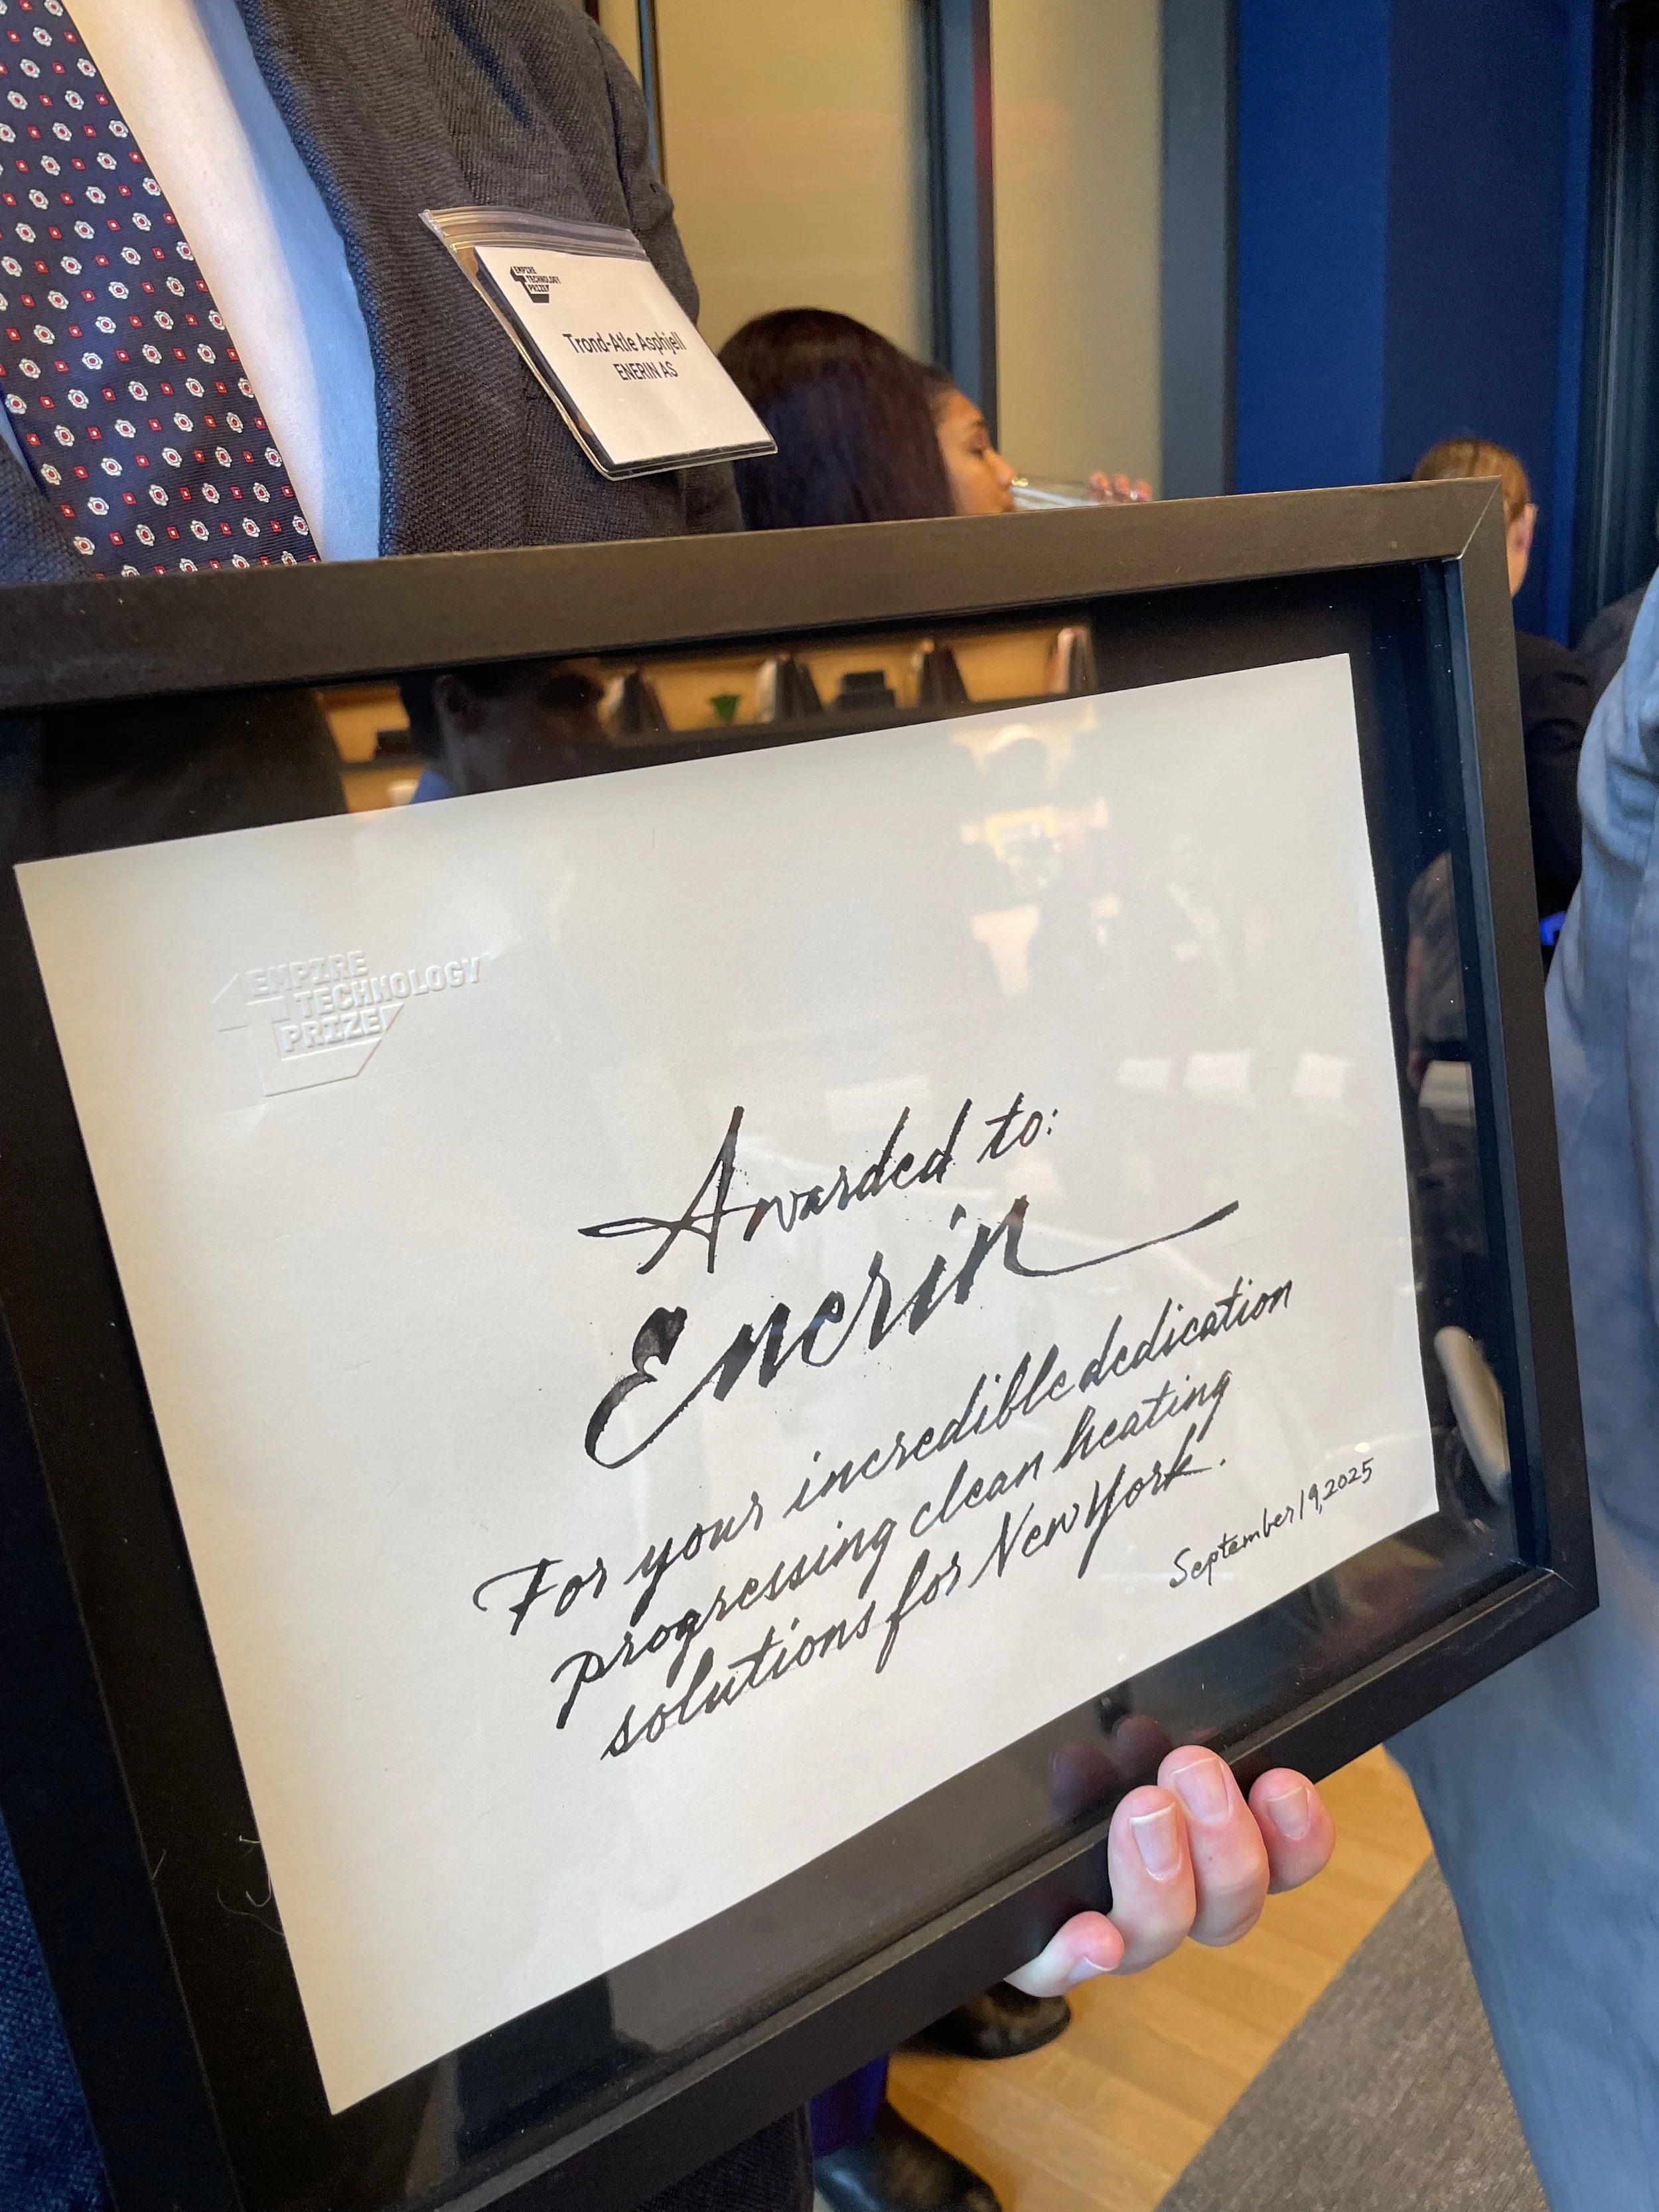 EMPIRE
TECHNOLOGY
PRIZE
Trond-Atle Asphjell
ENERIN AS
EMPIRE
TECHNOLOGY
PRIZE
Awarded to:
Enerin
For your incredible dedication
progressing clean heating
solutions for New York.
September 19, 2025